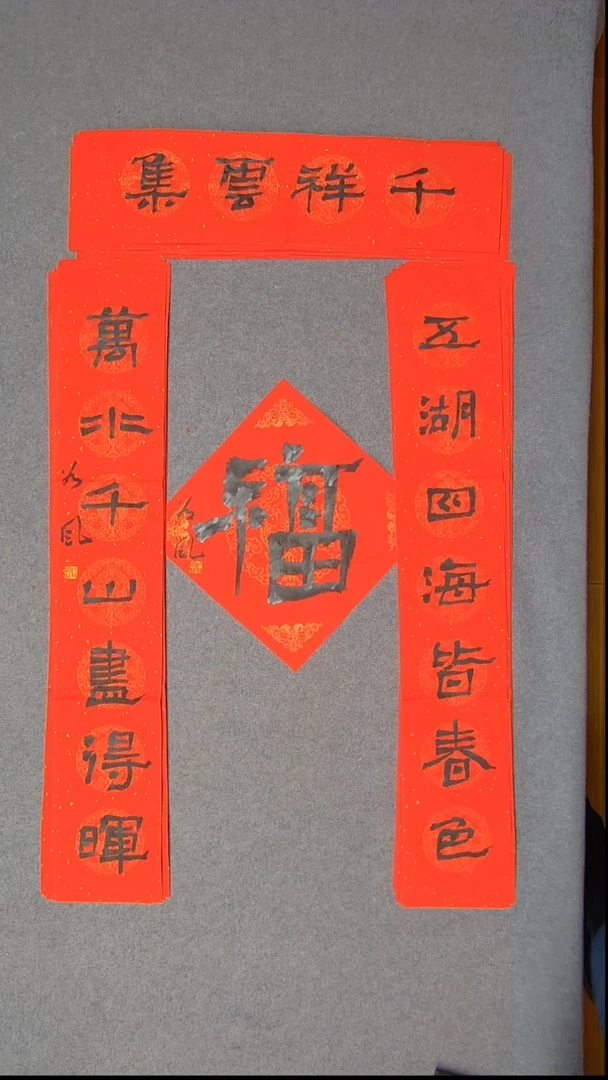 千祥雲集
五湖四海皆春色
萬水千山盡得暉
福